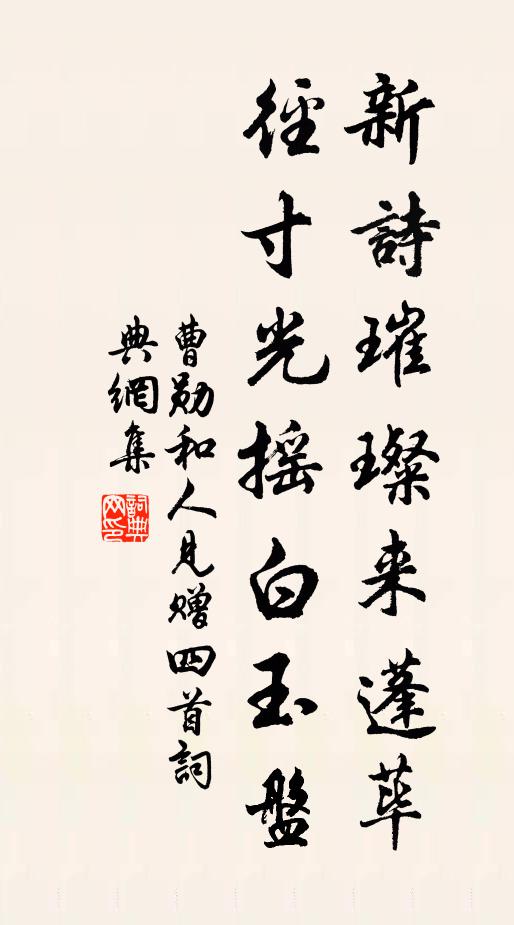 新詩璀璨来蓬蓽
徑寸光搖白玉盤
曹勛和人見贈四首詞
典網集
詞典網印